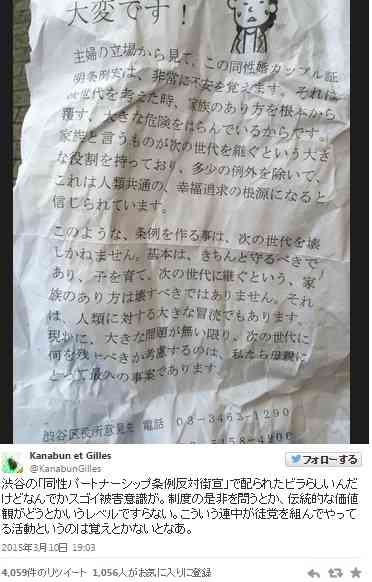 大変です！
主婦の立場から見て、この同性婚カップル証
明条例案は、非常に不安を覚えます。それは
次世代を考えた時、家族のあり方を根本から
覆す、大きな危険をはらんでいるからです。
家族と言うものが次の世代を継ぐという大き
な役割を持っており、多少の例外を除いて、
これは人類共通の、幸福追求の根源になると
信じられています。
このような、条例を作る事は、次の世代を壊
しかねません。基本は、きちんと守るべきで
あり、子を育て、次の世代に継ぐという、家
族のあり方は壊すべきではありません。それ
は、人類に対する大きな冒涜でもあります。
現かに、大きな問題が無い限り、次の世代に
何を残すべきか考慮するのは、私たち母親に
とって最大の事案であります。
渋谷区長所意見先 電話 03-3463-1290
Kanabun et Gilles
@KanabunGilles
フォローする
渋谷の「同性パートナーシップ条例反対街宣」で配られたビラらしいんだ
けどなんでかスゴイ被害意識が。制度の是非を問うとか、伝統的な価値
観がどうとかいうレベルですらない。こういう連中が徒党を組んでやって
る活動というのは覚えとかないとなあ。
2015年3月10日 19:03
4,059件のリツイート 1,056人がお気に入りに登録